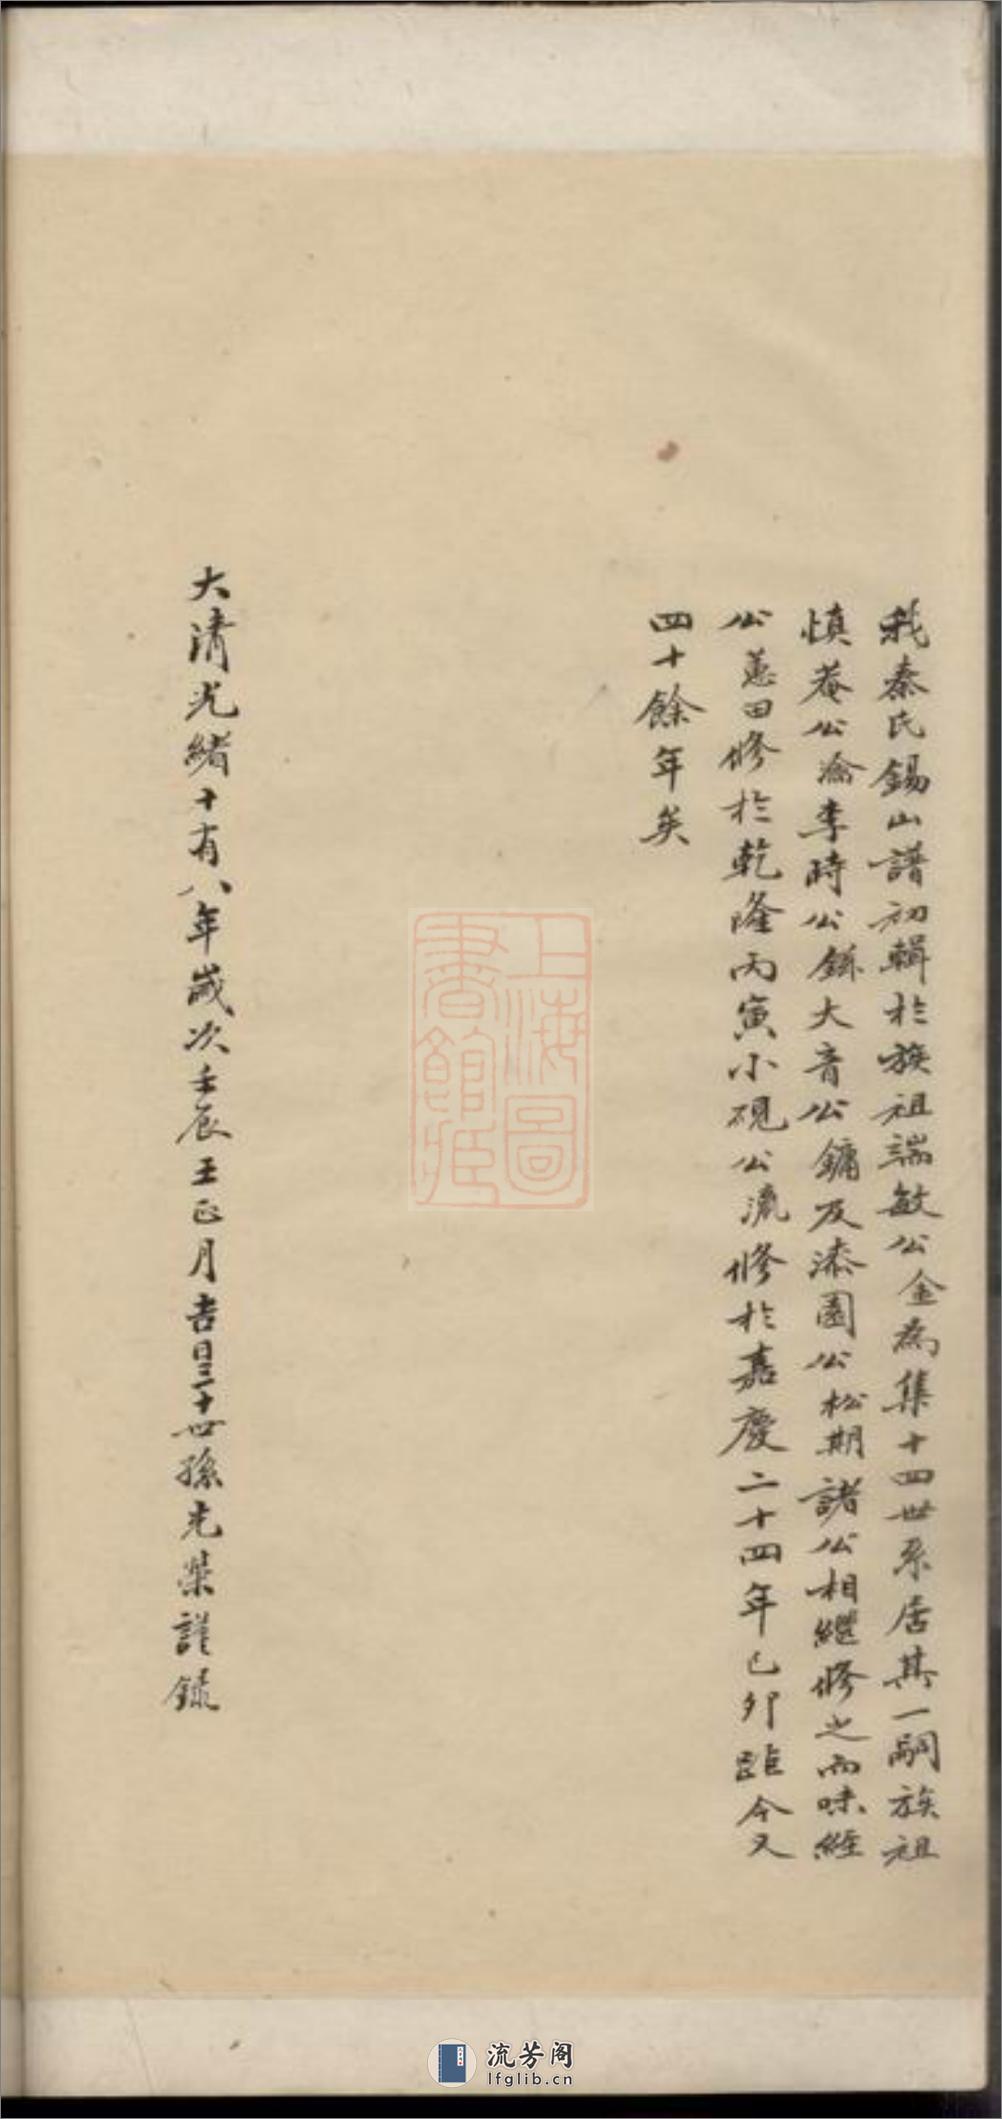 我秦氏錫山譜初輯於族祖端敏公金為集十四世系居其一嗣族祖
慎菴公瀹季時公鉌大音公鏞及漆園公松期諸公相繼修之而味經
公蕙田修於乾隆丙寅小硯公瀛修於嘉慶二十四年己卯距今又
四十餘年矣
大清光緒十有八年歲次壬辰王正月吉日三十世孫光榮謹錄
上海圖
書館藏
流芳阁
lfglib.cn